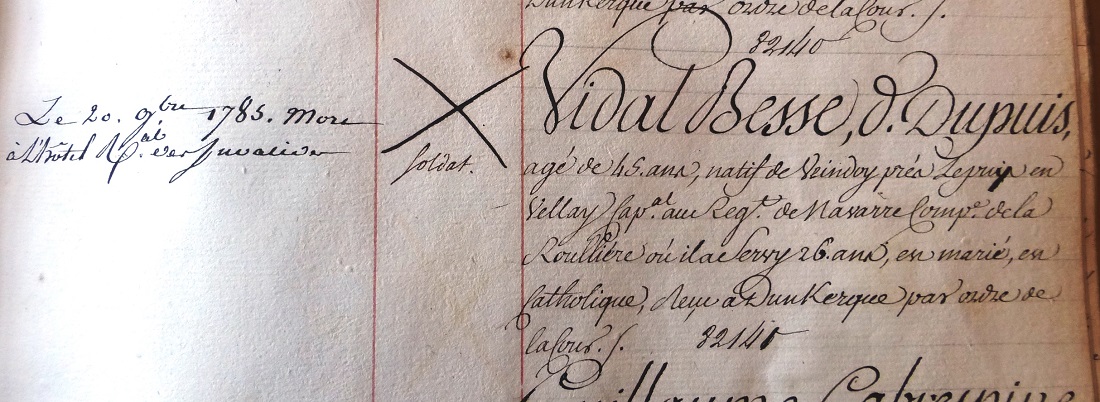 Dunkerque par ordre de la Cour. /.
82140
Le 20. 9bre 1785. Mort
à L'hôtel R.al des Invalides
Soldat.
Vidal Besse, d. Dupuis,
agé de 45. ans, natif de près Lepuy en
Vellay Cap.al au Regt. de Navarre Compe. de la
Roullière où il a Servy 26. ans, est marié, est
Catholique, Reçu à Dunkerque par ordre de
la Cour. /. 82141
Guillaume